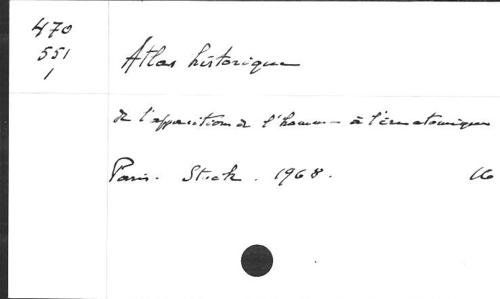 470
551
1
Atlas historique
de l'apparition de l'homme à l'ère atomique
Paris. Stock. 1968.